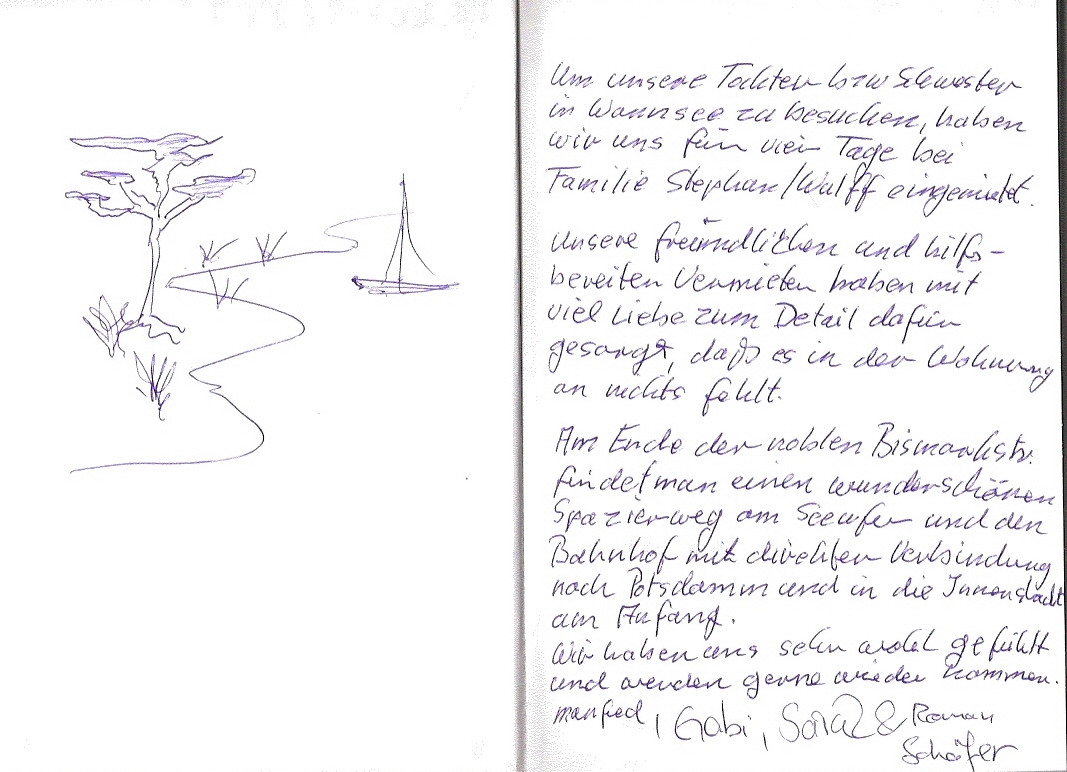 Um unsere Tochter bzw Schwester
in Wannsee zu besuchen, haben
wir uns für vier Tage bei
Familie Stephan/Wulff eingemietet.
Unsere freundlichen und hilfs-
bereiten Vermieter haben mit
viel Liebe zum Detail dafür
gesorgt, daß es in der Wohnung
an nichts fehlt.
Am Ende der noblen Bismarkstr.
findet man einen wunderschönen
Spazierweg am Seeufer und den
Bahnhof mit direkter Verbindung
nach Potsdamm und in die Innenstadt
am Anfang.
Wir haben uns sehr wohl gefühlt
und werden gerne wieder kommen.
Manfred, Gabi, Sara & Roman
Schäfer